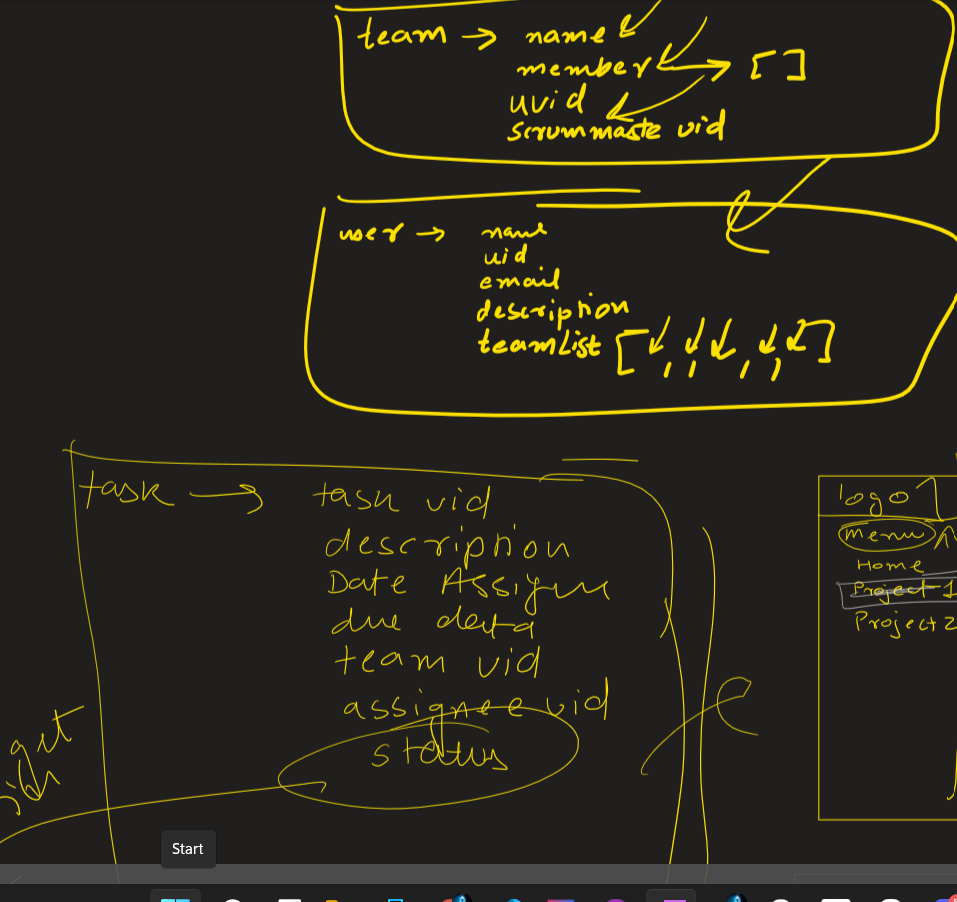 team → name
member → [ ]
uvid
scrum maste vid
user → name
uid
email
description
teamList [ , , , , ]
task → task vid
description
Date Assign
due data
team vid
assignee vid
status
logo
menu
Home
Project 1
Project 2
Start